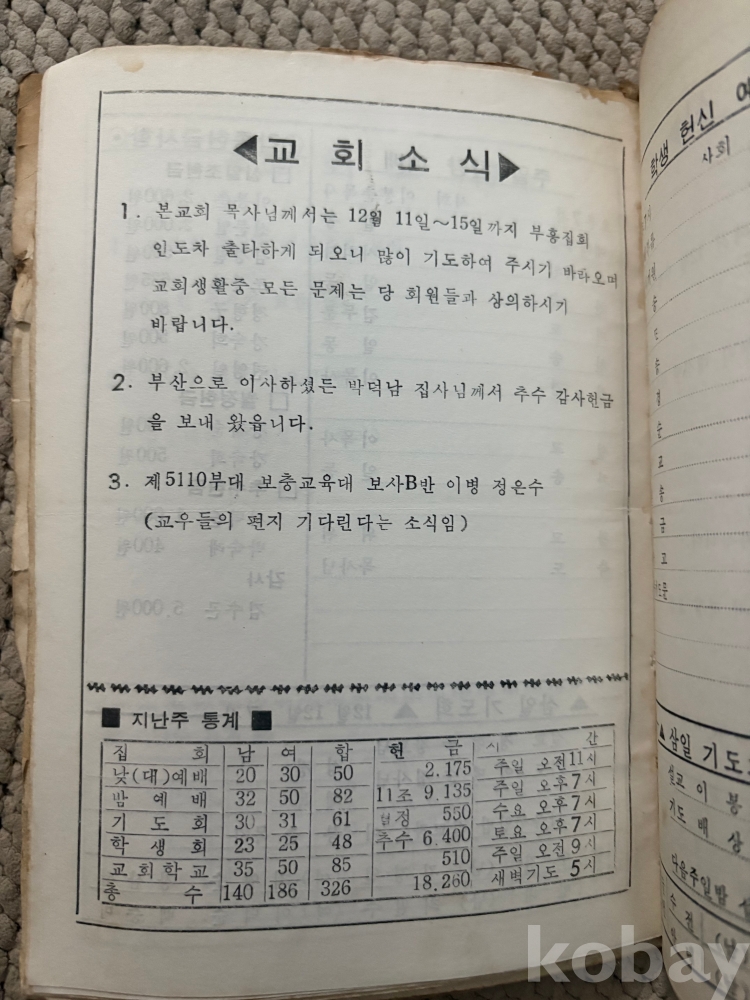 ◀교 회 소 식▶
1. 본교회 목사님께서는 12월 11일~15일까지 부흥집회
인도차 출타하게 되오니 많이 기도하여 주시기 바라오며
교회생활중 모든 문제는 당 회원들과 상의하시기
바랍니다.
2. 부산으로 이사하셨든 박덕남 집사님께서 추수 감사헌금
을 보내 왔읍니다.
3. 제5110부대 보충교육대 보사B반 이병 정은수
(교우들의 편지 기다린다는 소식임)
■ 지난주 통계 ■
집 회 남 여 합 헌 금 시 간
낮(대)예배 20 30 50 2.175 주일 오전11시
밤 예 배 32 50 82 11조 9.135 주일 오후7시
기 도 회 30 31 61 월정 550 수요 오후7시
학 생 회 23 25 48 추수 6.400 토요 오후7시
교회학교 35 50 85 510 주일 오전9시
총 수 140 186 326 18.260 새벽기도 5시
학생 헌신 예
사회
▲삼일 기도
설교 이 봉
기도 배 상
다음주일밤
kobay